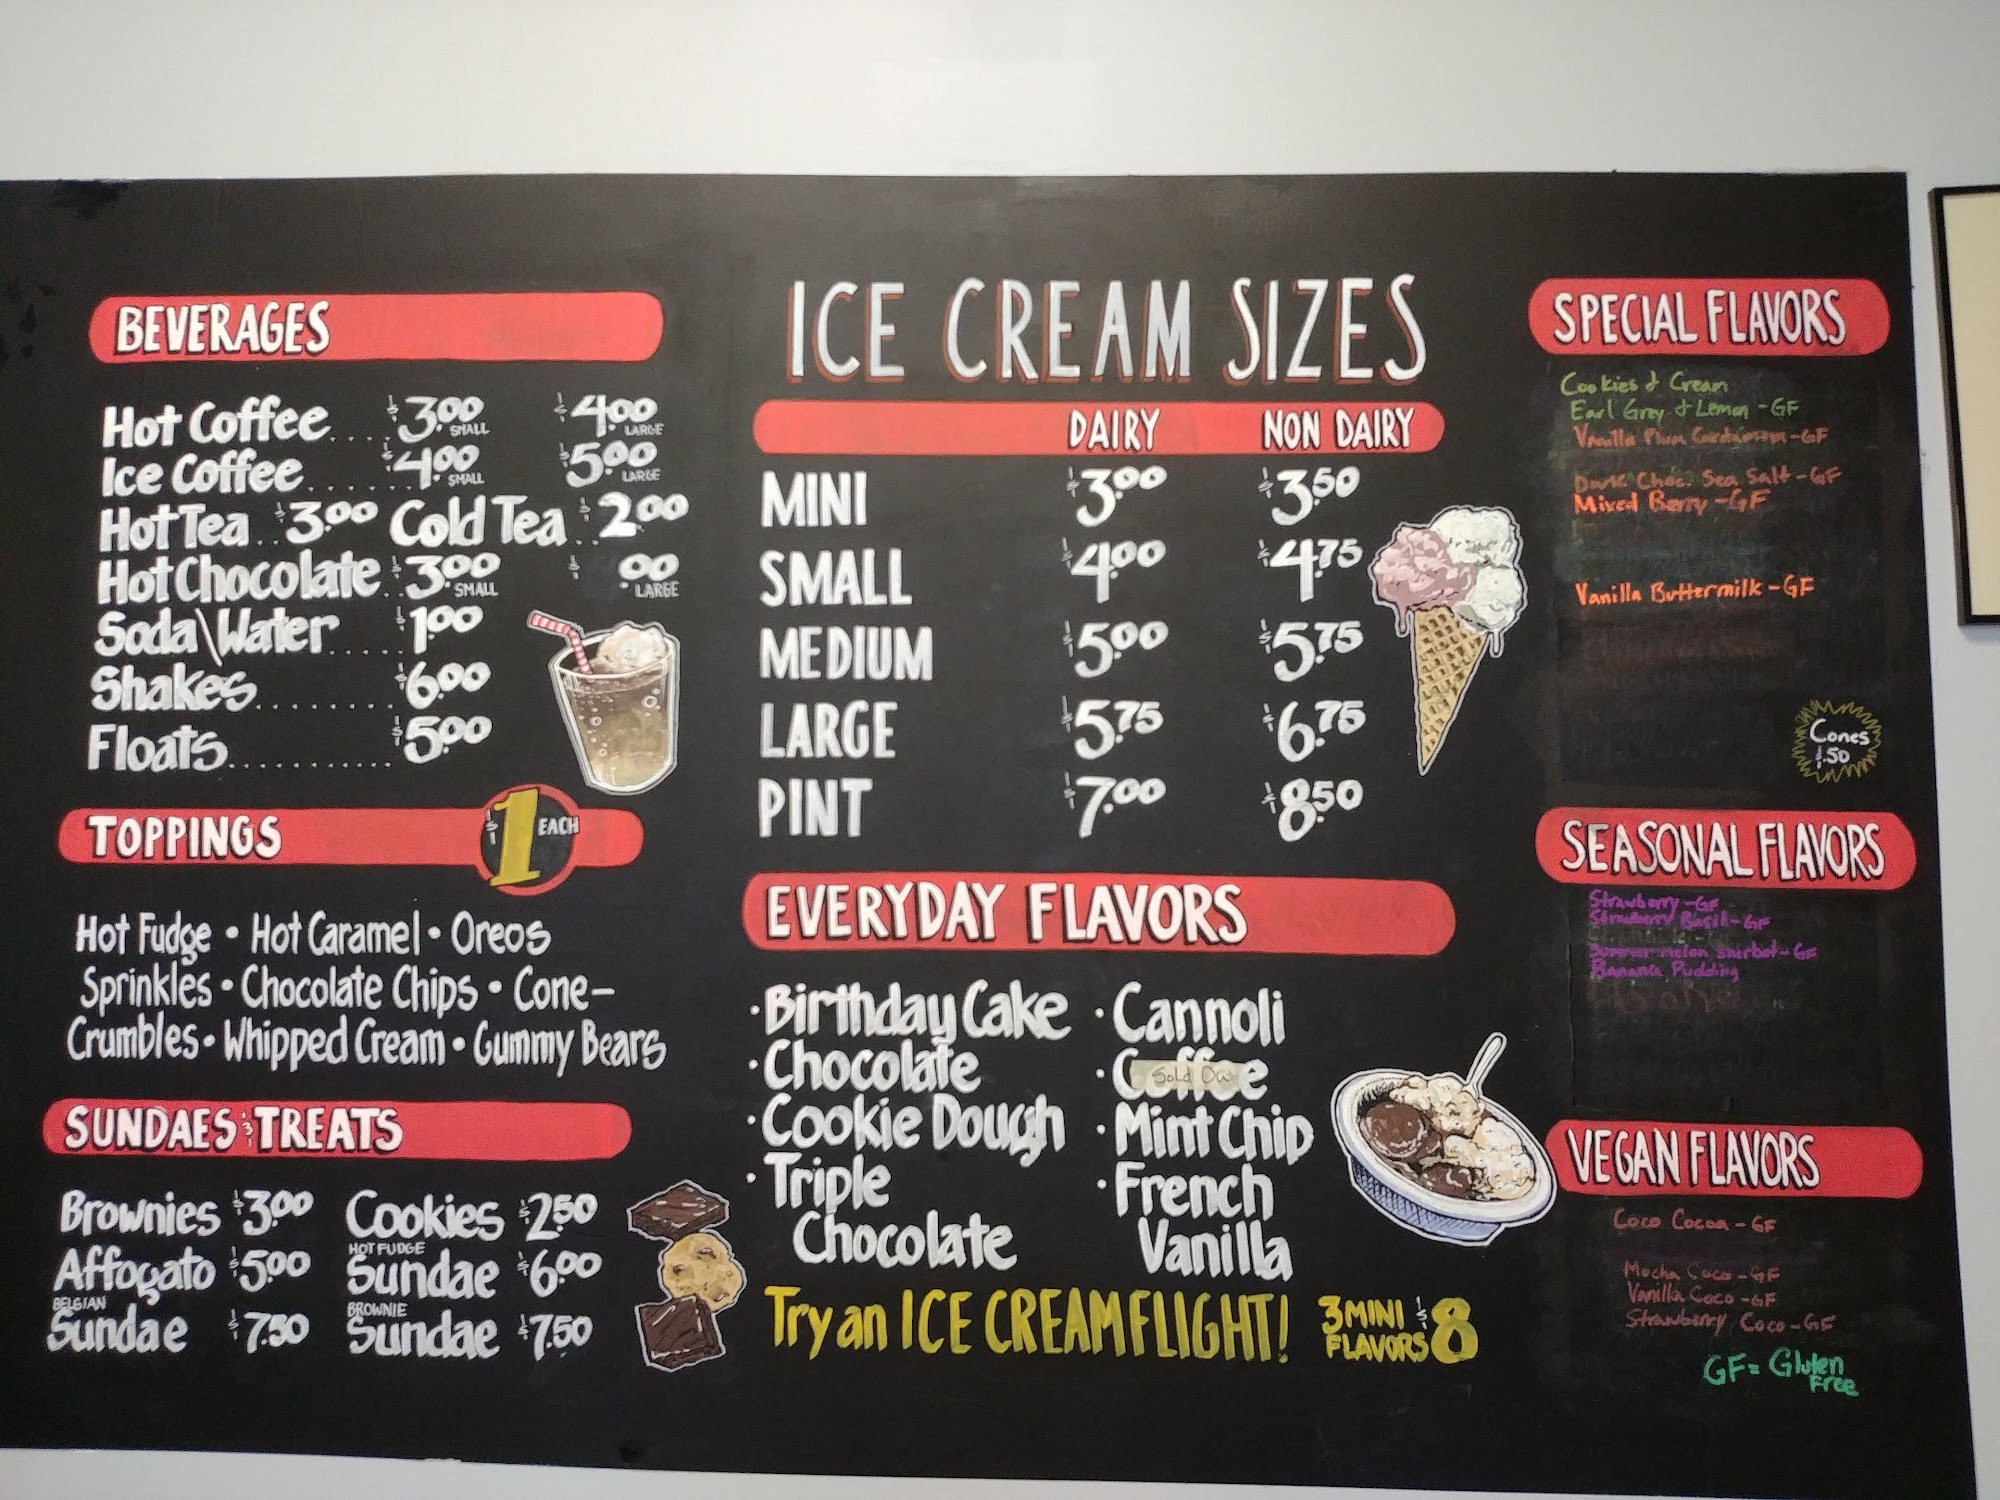 BEVERAGES
Hot Coffee.... $3.00 SMALL $4.00 LARGE
Ice Coffee....... $4.00 SMALL $5.00 LARGE
Hot Tea.. $3.00 Cold Tea.. $2.00
Hot Chocolate.. $3.00 SMALL $ .00 LARGE
Soda\Water..... $1.00
Shakes......... $6.00
Floats........... $5.00
TOPPINGS $1 EACH
Hot Fudge • Hot Caramel • Oreos
Sprinkles • Chocolate Chips • Cone-
Crumbles • Whipped Cream • Gummy Bears
SUNDAES & TREATS
Brownies $3.00 Cookies $2.50
Affogato $5.00 HOT FUDGE Sundae $6.00
BELGIAN Sundae $7.50 BROWNIE Sundae $7.50
ICE CREAM SIZES
DAIRY NON DAIRY
MINI $3.00 $3.50
SMALL $4.00 $4.75
MEDIUM $5.00 $5.75
LARGE $5.75 $6.75
PINT $7.00 $8.50
EVERYDAY FLAVORS
· Birthday Cake · Cannoli
· Chocolate · Coffee Sold Out
· Cookie Dough · Mint Chip
· Triple · French
Chocolate Vanilla
Try an ICE CREAM FLIGHT! 3 MINI FLAVORS $8
SPECIAL FLAVORS
Cookies & Cream
Earl Grey & Lemon - GF
Vanilla Plum Cardamom - GF
Dark Choc. Sea Salt - GF
Mixed Berry - GF
Vanilla Buttermilk - GF
Cones
$.50
SEASONAL FLAVORS
Strawberry - GF
Strawberry Basil - GF
Summer melon sherbet - GF
Banana Pudding
VEGAN FLAVORS
Coco Cocoa - GF
Mocha Coco - GF
Vanilla Coco - GF
Strawberry Coco - GF
GF = Gluten
Free